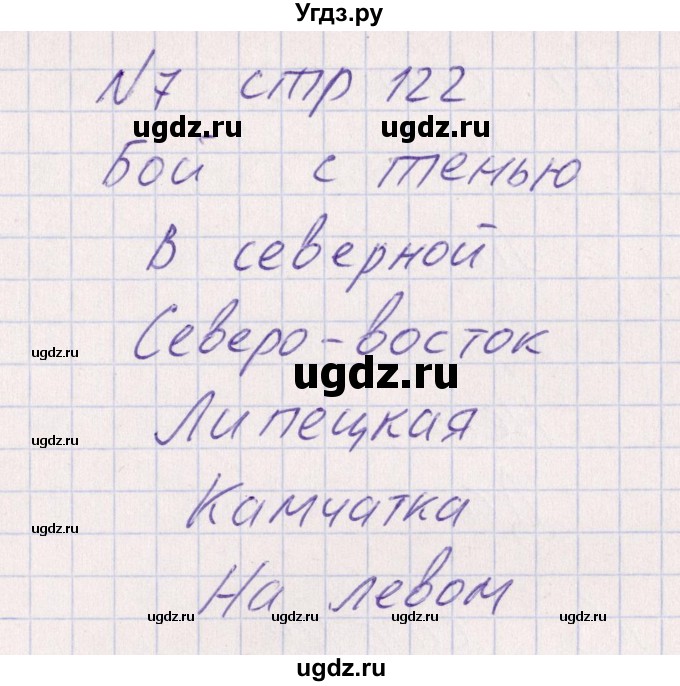 Угдз.ру
№7 стр 122
ugdz.ru ugdz.ru
Бой с тенью
В северной
Северо-восток
ugdz.ru
ugdz.ru
Липецкая
ugdz.ru
Камчатка
ugdz.ru
На левом
ugdz.ru ugdz.ru ugdz.ru
ugdz.ru